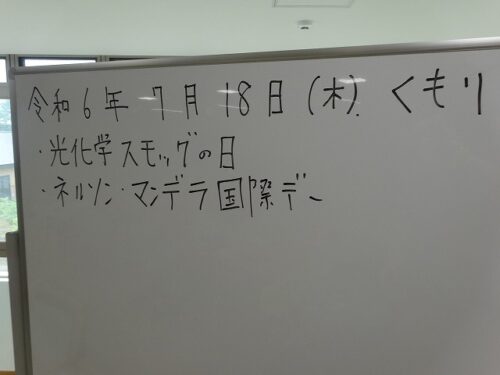 令和6年 7月 18日(木). くもり
・光化学スモッグの日
・ネルソン・マンデラ国際デー